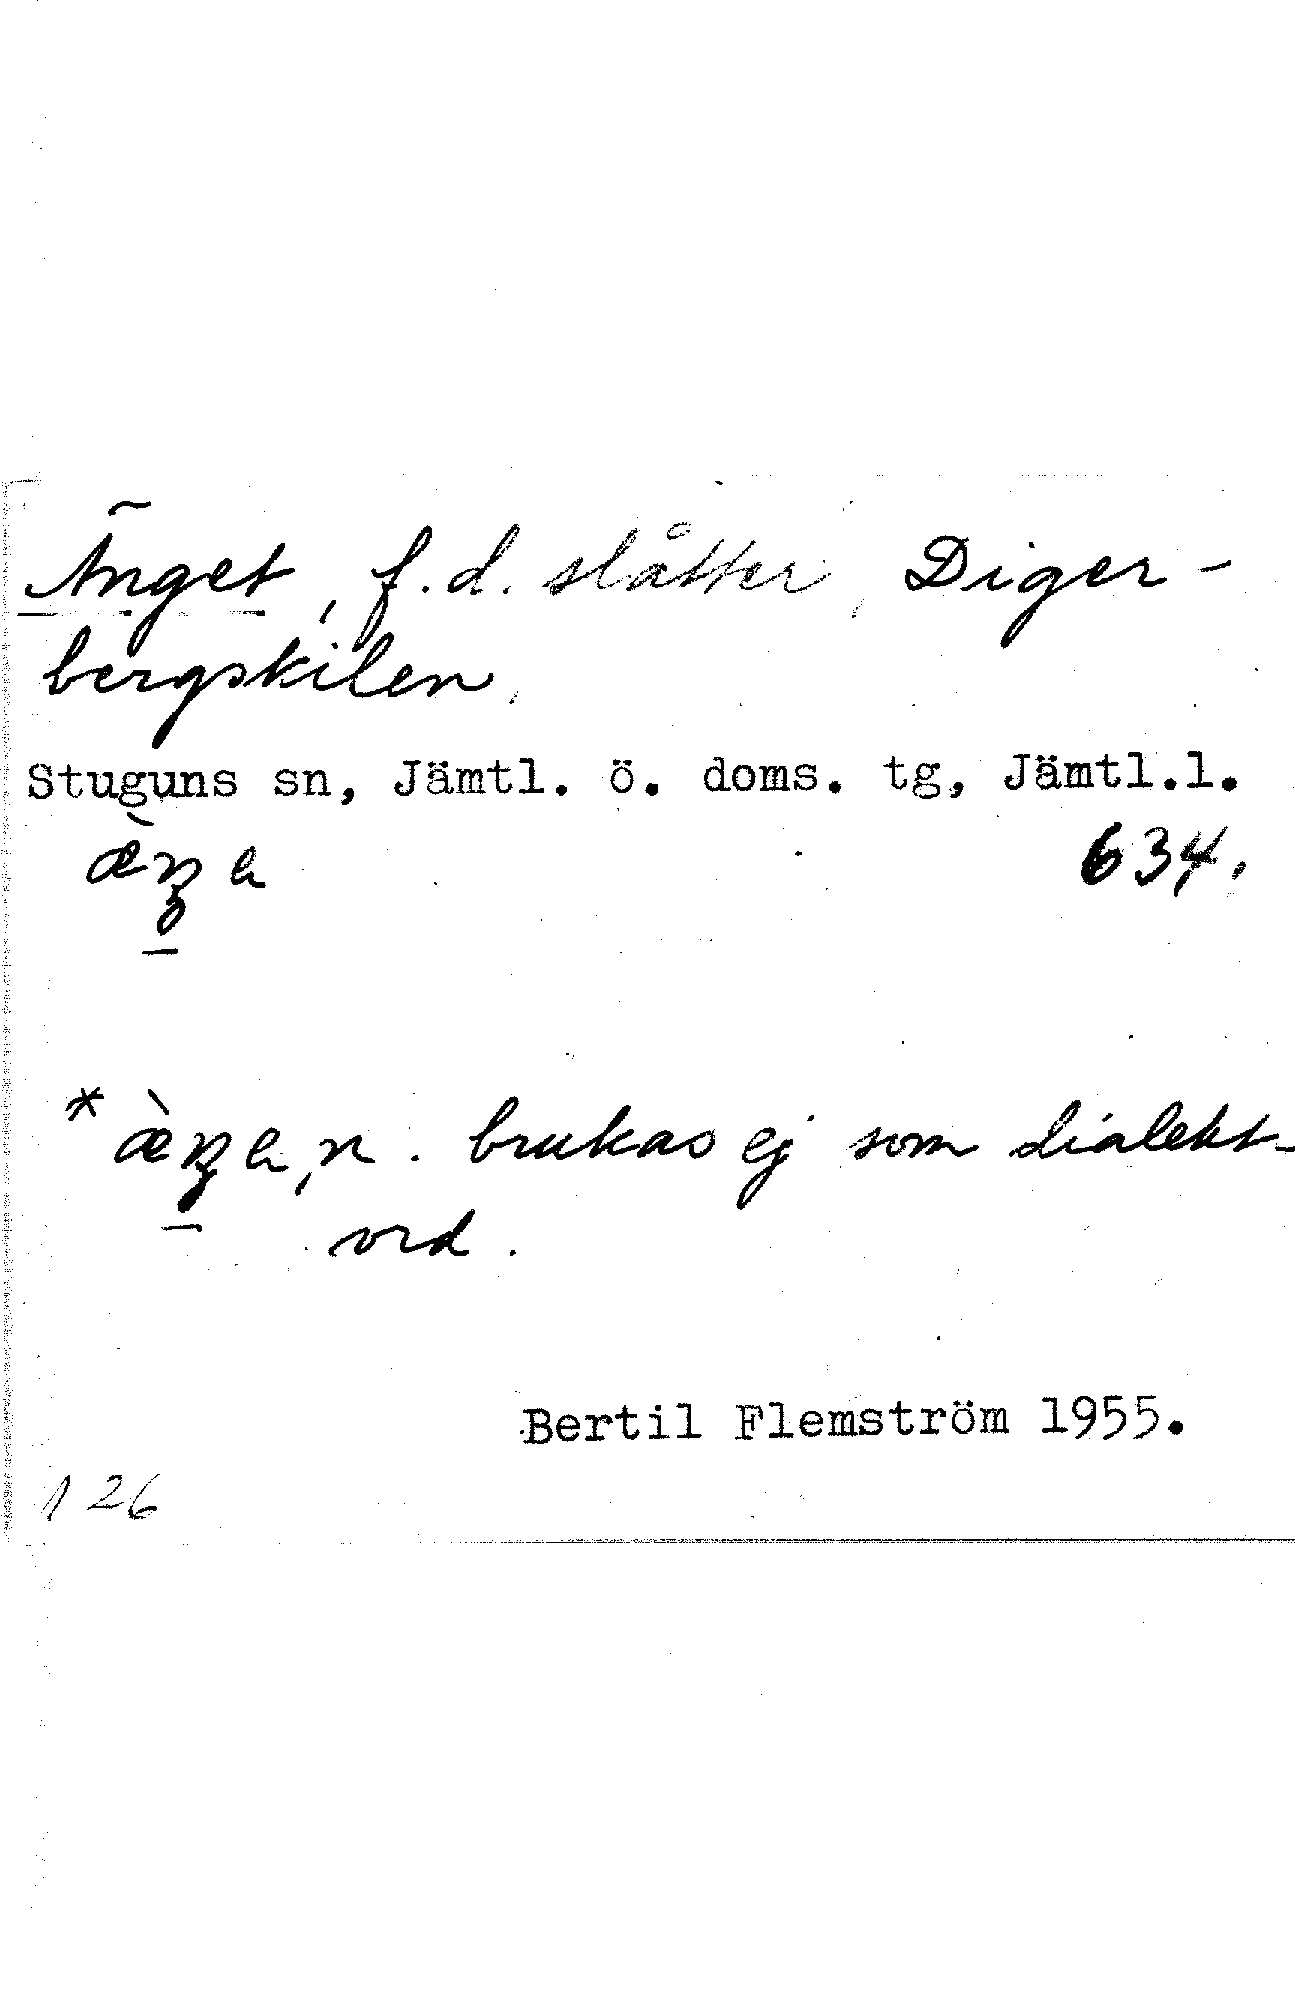 Änget, f.d. slåtter, Diger-
bergskilen.
Stuguns sn, Jämtl. ö. doms. tg, Jämtl.l.
634.
brukas ej som dialekt-
ord.
Bertil Flemström 1955.
126